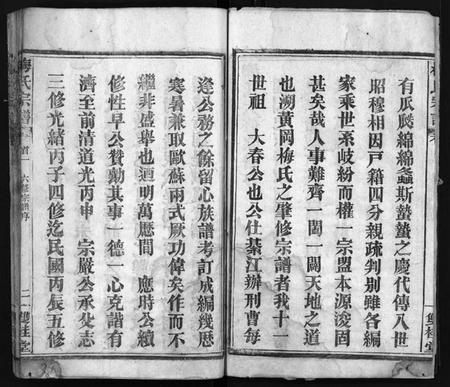 有瓜瓞綿綿螽斯蟄蟄之慶代傳八世
昭穆相因戸籍四分親疏判別雖各編
家乘世系岐紛而權一宗盟本源浚固
甚矣哉人事難齊一闔一闢天地之道
也溯黃岡梅氏之肇修宗譜者我十一
世祖 大春公也公仕綦江辦刑曹每
梅氏宗譜
首一
六修宗譜序
二
雙桂堂
逢公務之餘留心族譜考訂成編幾歷
寒暑兼取歐蘇兩式厥功偉矣作而不
繼非盛舉也迺明萬厯間 應時公續
修性早公贊勷其事一德一心克諧有
濟至前清道光丙申 宗嚴公承父志
三修光緒丙子四修迄民國丙辰五修